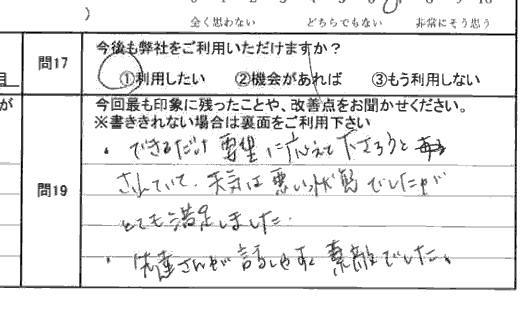 )
全く思わない どちらでもない 非常にそう思う
問17 今後も弊社をご利用いただけますか?
①利用したい ②機会があれば ③もう利用しない
問19 今回最も印象に残ったことや、改善点をお聞かせください。
が ※書ききれない場合は裏面をご利用下さい
・できるだけ要望に応えて下さろうと
されていて、天気は悪い状態でしたが
とても満足しました。
・先達さんが話しやすく素敵でした。